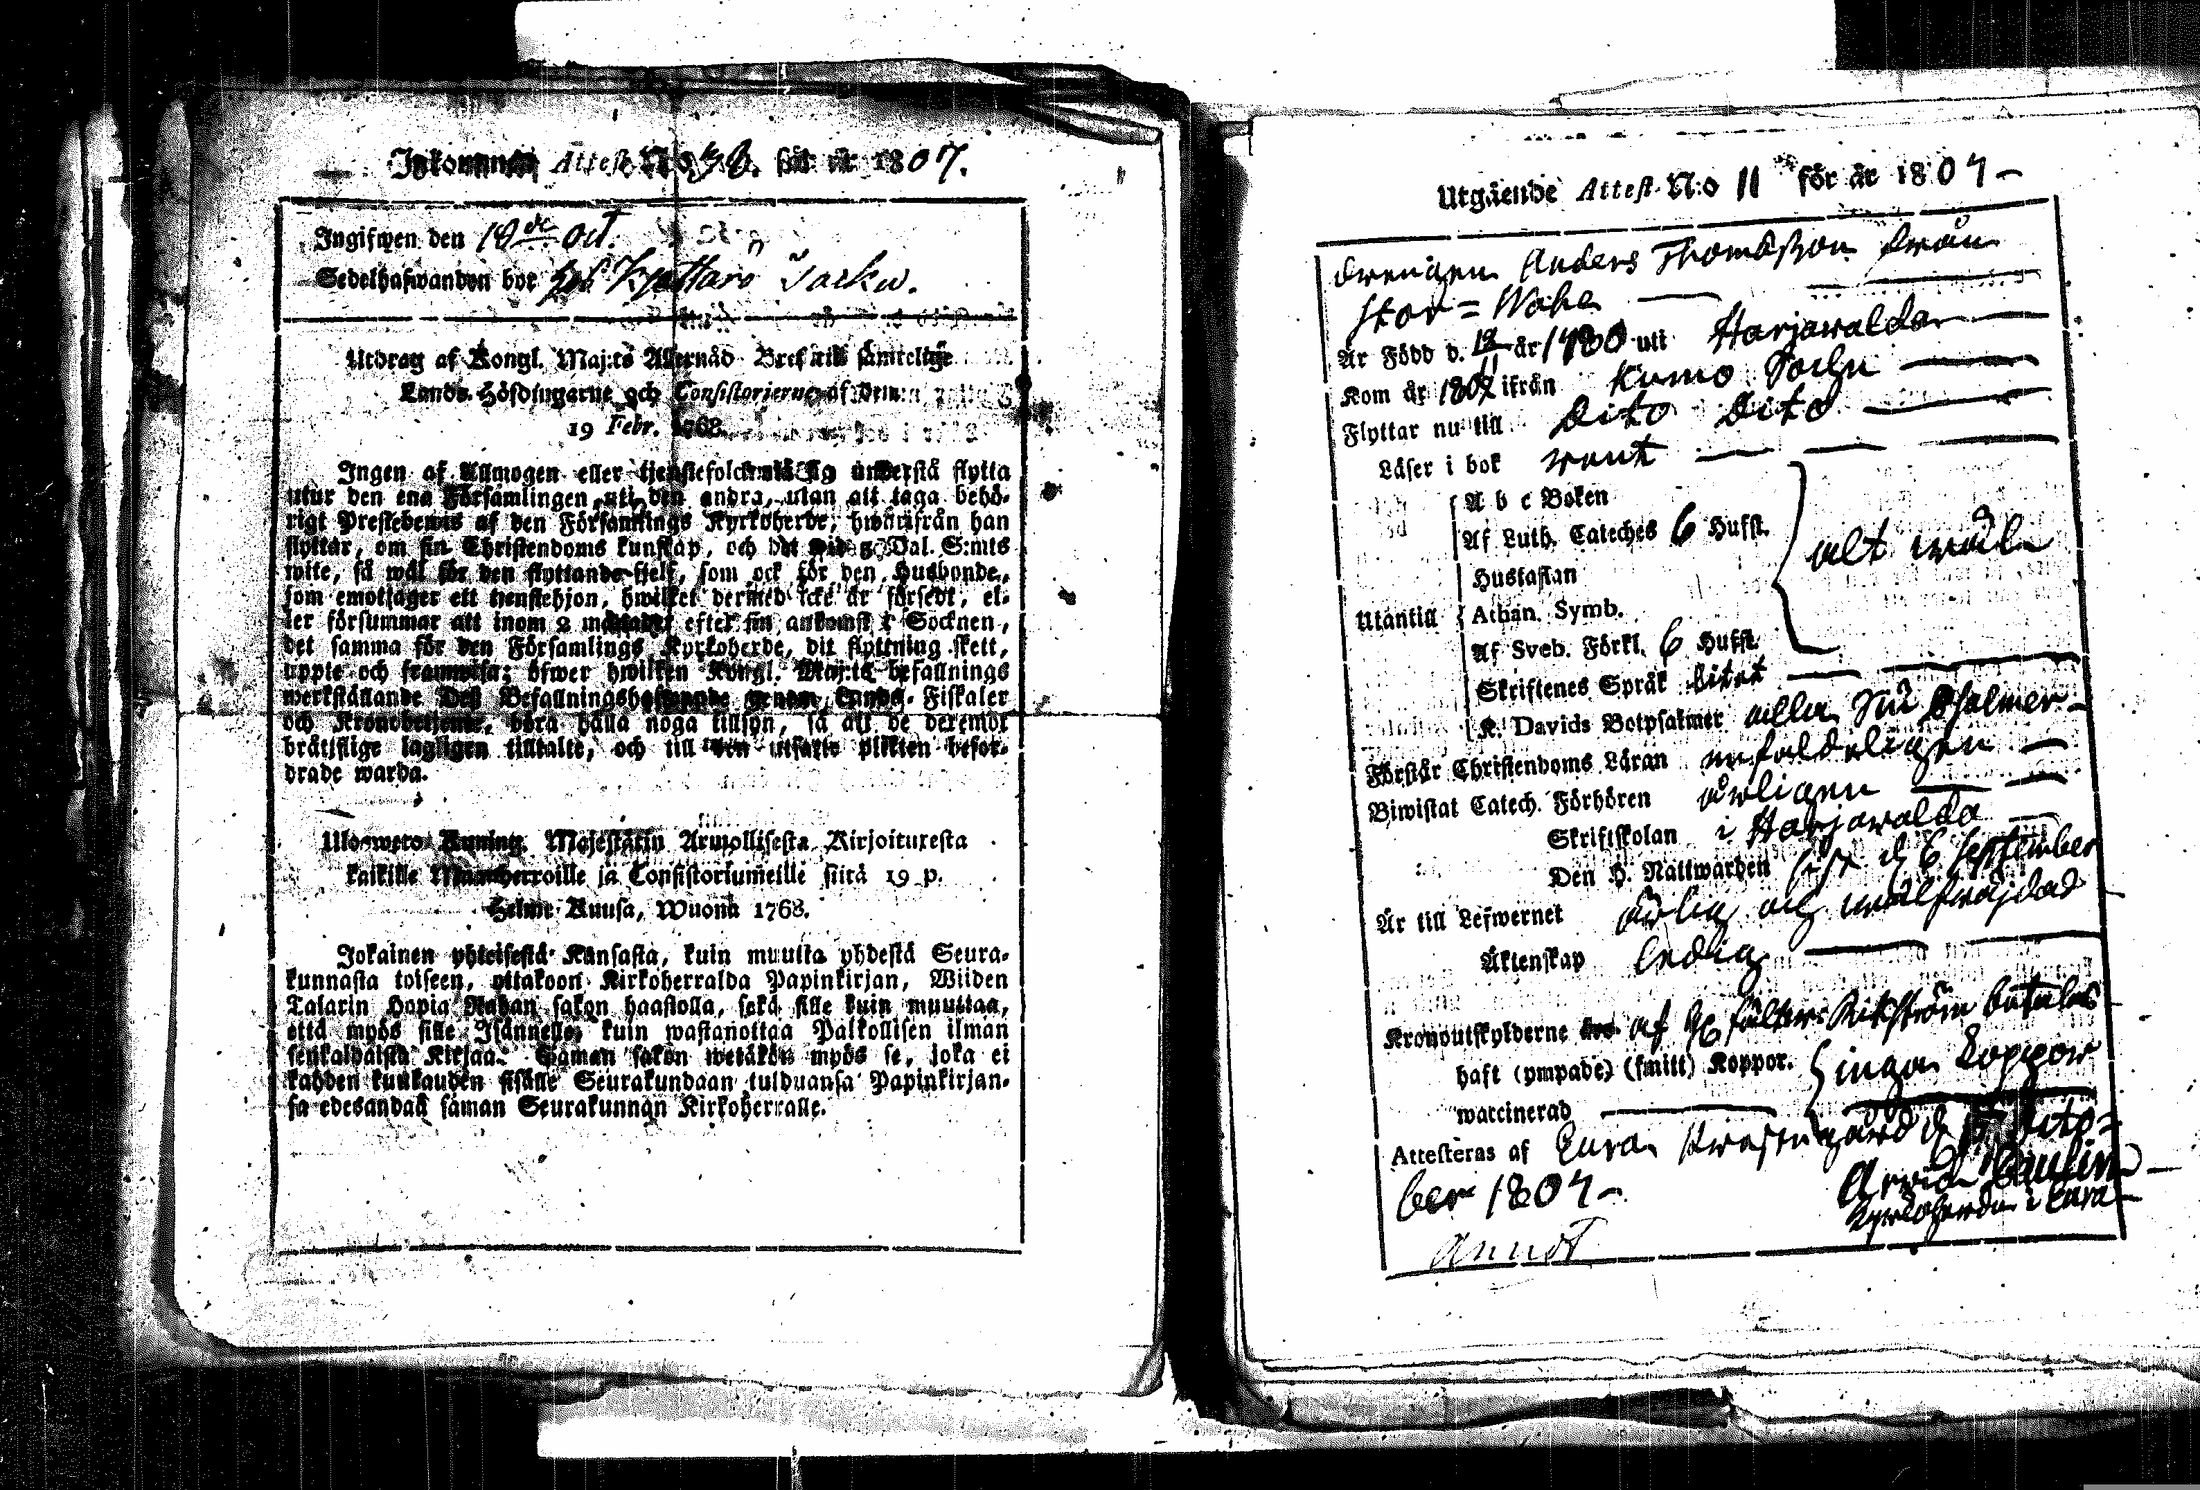 Inkommen Attest N:o 38. för år 1807.
Ingifwen den 19de oct.
Sedelhafwanden bor hos
Utdrag af Kongl. Maj:ts Allernåd. Bref till samtelige
Lands-Höfdingarne och Consistorierne af den
19 Febr. 1768.
Ingen af Allmogen eller tjenstefolcket må sig understå flytta
utur den ena Församlingen uti den andra, utan att taga behö-
rigt Prestebewis af den Församlings Kyrkoherde, hwarifrån han
flyttar, om sin Christendoms kunskap, och det wid 5 Dal. S:mts
wite, så wäl för den flyttande sjelf, som ock för den Husbonde,
som emottager ett tjenstehjon, hwilket dermed icke är försedt, el-
ler försummar att inom 2 månader efter sin ankomst i Socknen,
det samma för den Församlings Kyrkoherde, dit flyttning skett,
uppte och framwisa; öfwer hwilken Kongl. Maj:ts befallnings
werkställande Deß Befallningshafwande genom Lands-Fiskaler
och Kronobetjente, böra hålla noga tillsyn, så att de deremot
brottslige lagligen tilltalte, och till den utsatte plikten befor-
drade warda.
Ulosweto Kuning. Majestätin Armollisesta Kirjoituxesta
kaikille Maanherroille ja Consistoriumeille siitä 19 p.
Helme-Kuusa, Wuonna 1768.
Jokainen yhteisestä Kansasta, kuin muutta yhdestä Seura-
kunnasta toiseen, ottakoon Kirkoherralda Papinkirjan, Wiiden
Talarin Hopia Rahan sakon haastolla, sekä sille kuin muuttaa,
että myös sille Isännelle, kuin wastanottaa Palkollisen ilman
senkaldaista Kirjaa. Saman sakon wetäkön myös se, joka ei
kahden kuukauden sisälle Seurakundaan tulduansa Papinkirjan-
sa edesandaa saman Seurakunnan Kirkoherralle.
Utgående Attest N:o 11 för år 1807
Drengen Anders Thomasson från
Stor=
Är Född d. 12/11 år 1780 uti Harjawalda
Kom år 1807 ifrån Kumo Sochn
Flyttar nu till Dito Dito
Läser i bok rent
A b c Boken
Af Luth. Cateches 6 Hufst.
alt wäl
Hustaflan
Utantill Athan. Symb.
Af Sveb. Förkl. 6 Hufst.
Skriftenes Språk litet
K. Davids Botpsalmer alla Siu Psalmer
Förstår Christendoms Läran enfaldeligen
Biwistat Catech. Förhören årligen
Skriftskolan i Harjawalda
Den H. Nattwarden sist d 6 September
Är till Lefwernet ärlig och wälfräjdad
Äktenskap ledig
Kronoutskylderne af betalas
haft (ympade) (smitt) Koppor. inga Koppor
waccinerad
Attesteras af Eura Prestegård d Octo=
ber 1807
Arvid Paulin
Kyrkoherde i Eura
annot